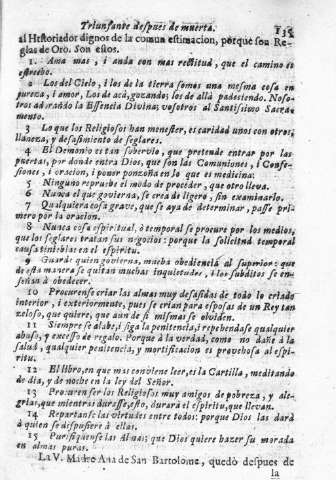 Triunfante despues de muerta.
135
al Historiador dignos de la comun estimacion, porque son Re-
glas de Oro. Son estos.
1. Ama mas, i anda con mas rectitud, que el camino es
estrecho.
2 Los del Cielo, i los de la tierra somos una mesma cosa en
pureza, i amor, Los de acá, gozando; los de allà padesiendo. Noso-
tros adorando la Essencia Divina; vosotros al Santissimo Sacra-
mento.
3 Lo que los Religiosos han menester, es caridad unos con otros,
llaneza, y desasimiento de seglares.
4 El Demonio es tan sobervio, que pretende entrar por las
puertas, por donde entra Dios, que son las Comuniones, i Confe-
siones, i oracion, i poner ponzoña en lo que es medicina:
5 Ninguno reprueve el modo de proceder, que otro lleva.
6 Nunca el que govierna, se crea de ligero, sin examinarlo.
7 Qualquiera cosa grave, que se aya de determinar, passe pri-
mero por la oracion.
8 Nunca cosa espiritual, ò temporal se procure por los medios,
que los seglares tratan sus negocios: porque la solicitud temporal
causa tinieblas en el espiritu.
9 Guarde quien govierna, mucha obediencia al superior: que
de esta manera se quitan muchas inquietudes, i los subditos se en-
señan à obedecer.
10 Procurense criar las almas muy desasidas de todo lo criado
interior, i exteriormente, pues se crian para esposas de un Rey tan
zeloso, que quiere, que aun de si mismas se olviden.
11 Siempre se alabe, i siga la penitencia, i reprehendase qualquier
abuso, y excesso de regalo. Porque à la verdad, como no dañe à la
salud, qualquier penitencia, y mortificacion es provehosa al espi-
ritu.
12 El libro, en que mas conviene leer, es la Cartilla, meditando
de dia, y de noche en la ley del Señor.
13 Procuren ser los Religiosos muy amigos de pobreza, y ale-
grias, que mientras durasse, esto, durará el espiritu, que llevan.
14 Repartanse las virtudes entre todos: porque Dios las dará
à quien se dispusiere à ellas.
15 Purifiquense las Almas; que Dios quiere hazer su morada
en almas puras.
La V. Madre Ana de San Bartolome, quedò despues de
la